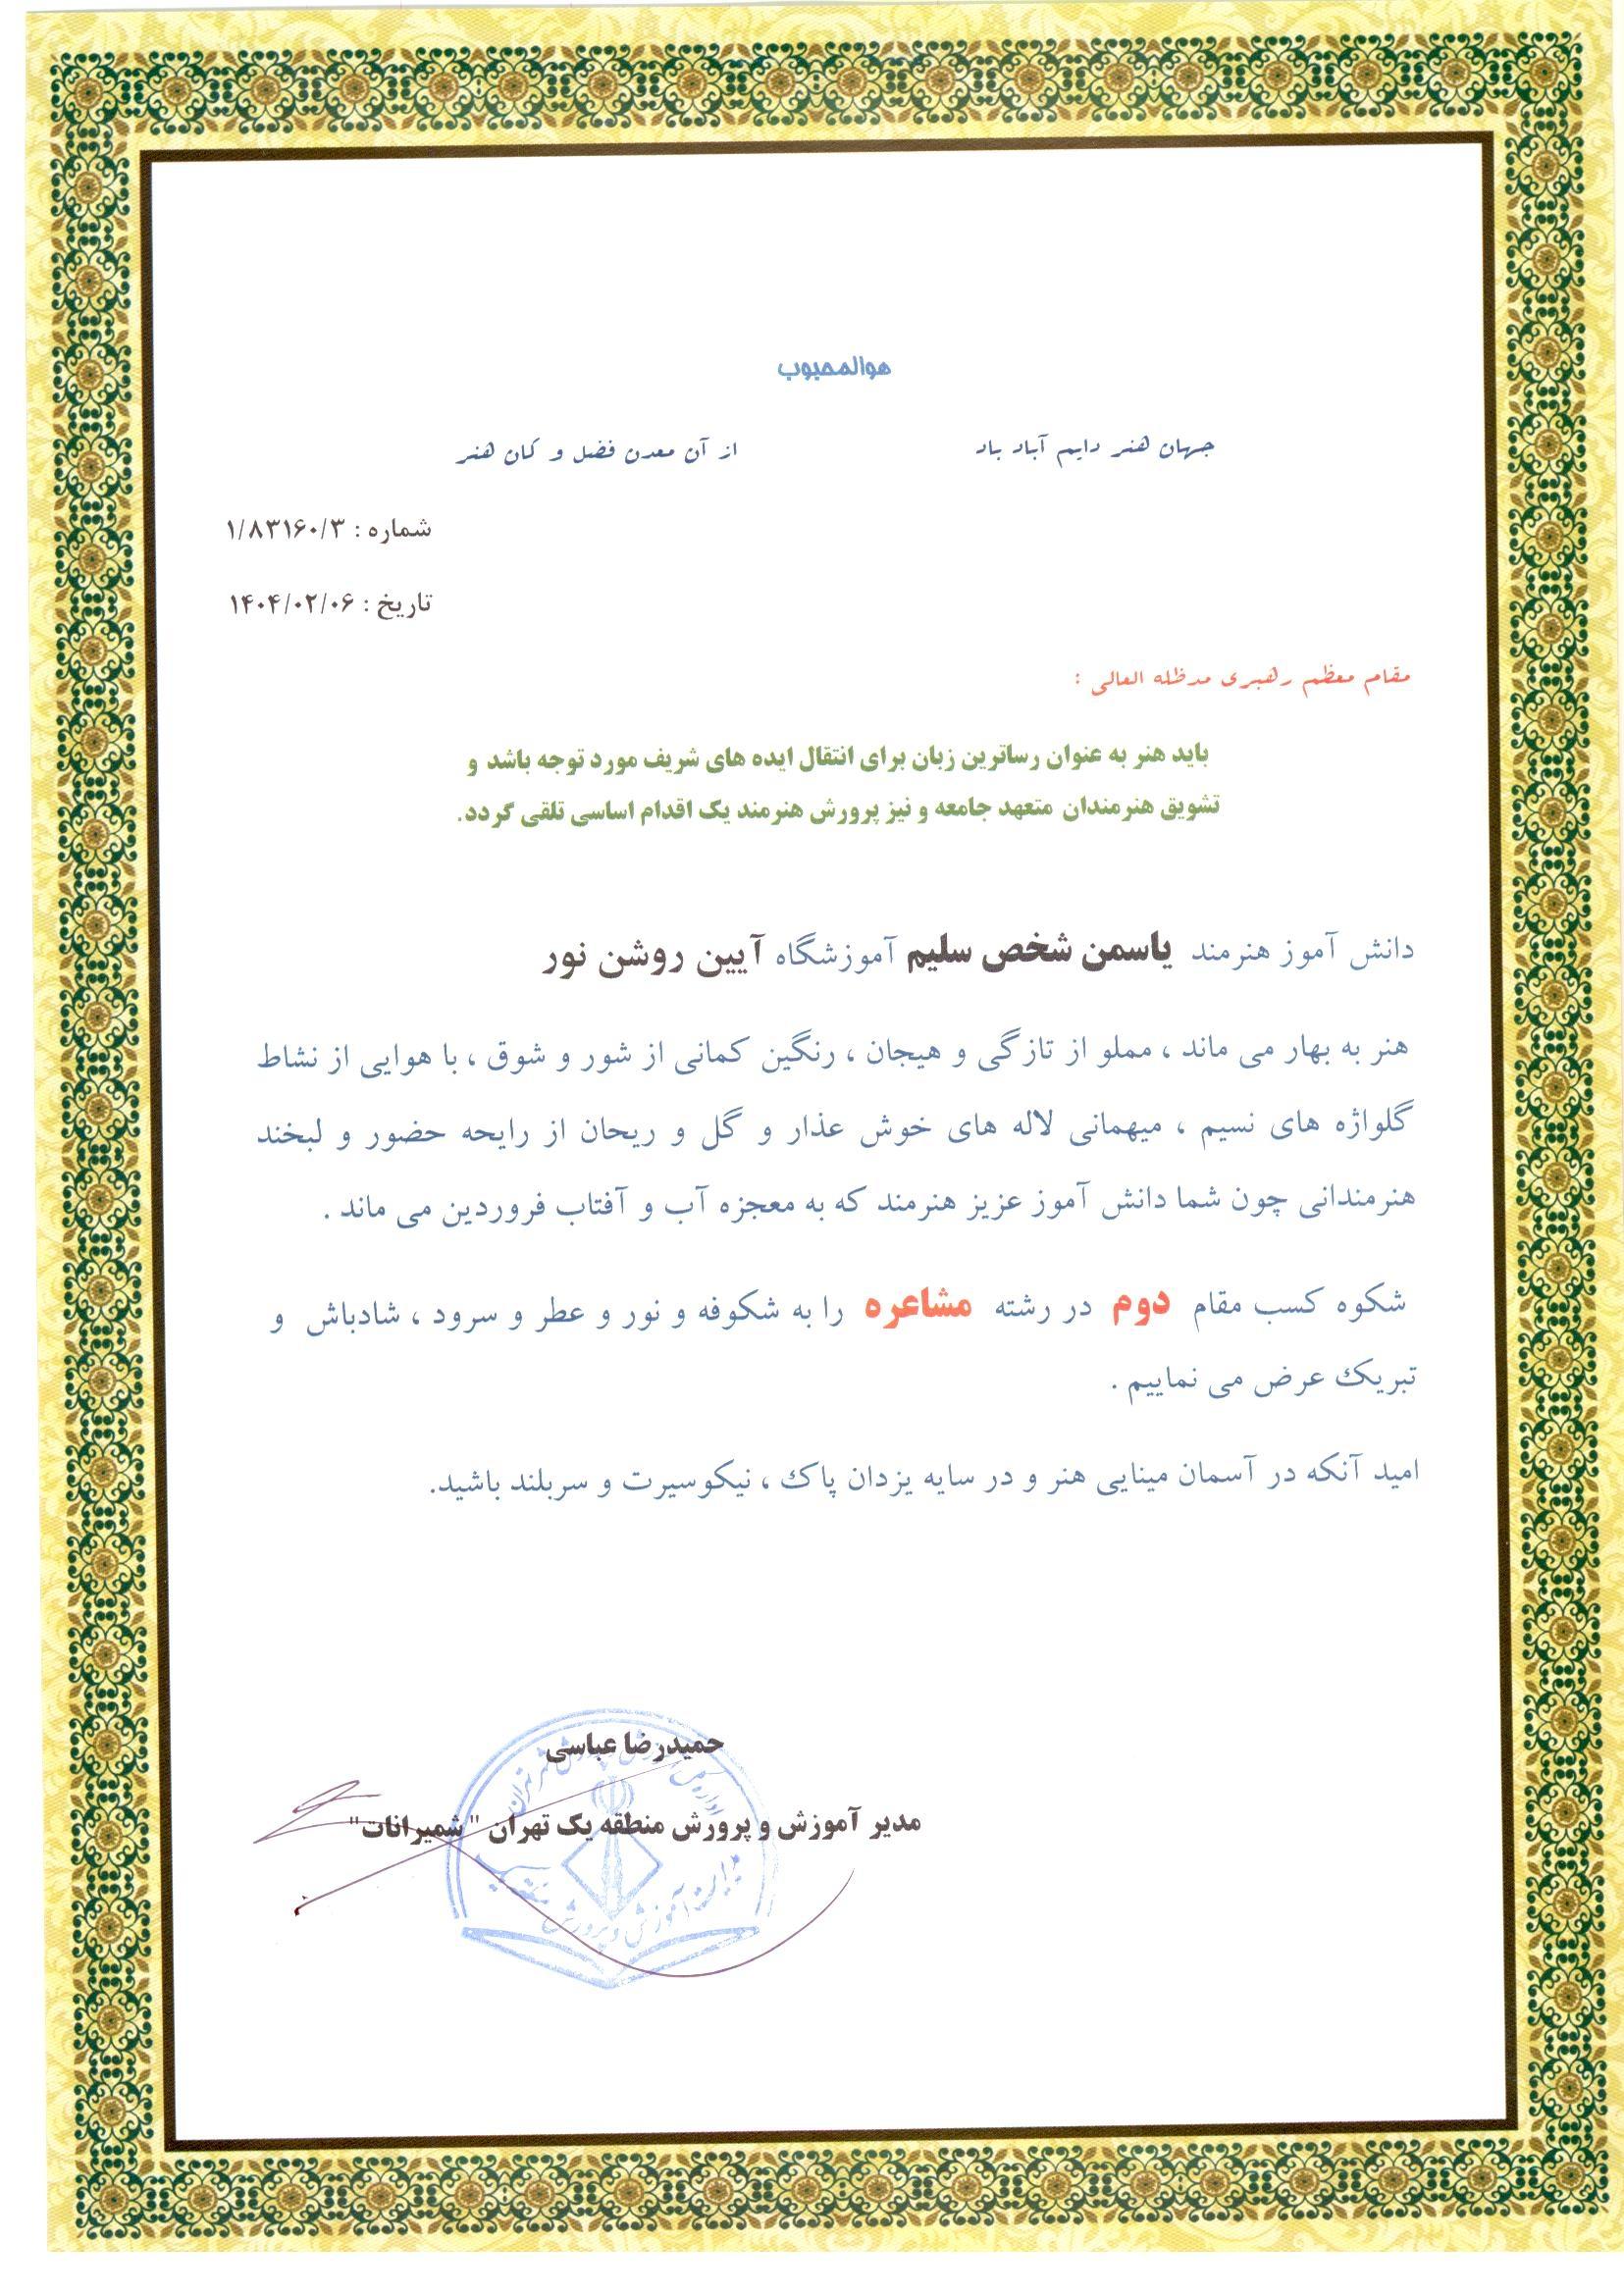 هوالمحبوب
جهان هنر دایم آباد باد از آن معدن فضل و کان هنر
شماره : ۱/۸۳۱۶۰/۳
تاریخ : ۱۴۰۴/۰۲/۰۶
مقام معظم رهبری مدظله العالی :
باید هنر به عنوان رساترین زبان برای انتقال ایده های شریف مورد توجه باشد و
تشویق هنرمندان متعهد جامعه و نیز پرورش هنرمند یک اقدام اساسی تلقی گردد.
دانش آموز هنرمند یاسمن شخص سلیم آموزشگاه آیین روشن نور
هنر به بهار می ماند ، مملو از تازگی و هیجان ، رنگین کمانی از شور و شوق ، با هوایی از نشاط
گلواژه های نسیم ، میهمانی لاله های خوش عذار و گل و ریحان از رایحه حضور و لبخند
هنرمندانی چون شما دانش آموز عزیز هنرمند که به معجزه آب و آفتاب فروردین می ماند .
شکوه کسب مقام دوم در رشته مشاعره را به شکوفه و نور و عطر و سرود ، شادباش و
تبریک عرض می نماییم .
امید آنکه در آسمان مینایی هنر و در سایه یزدان پاک ، نیکوسیرت و سربلند باشید.
حمیدرضا عباسی
مدیر آموزش و پرورش منطقه یک تهران "شمیرانات"